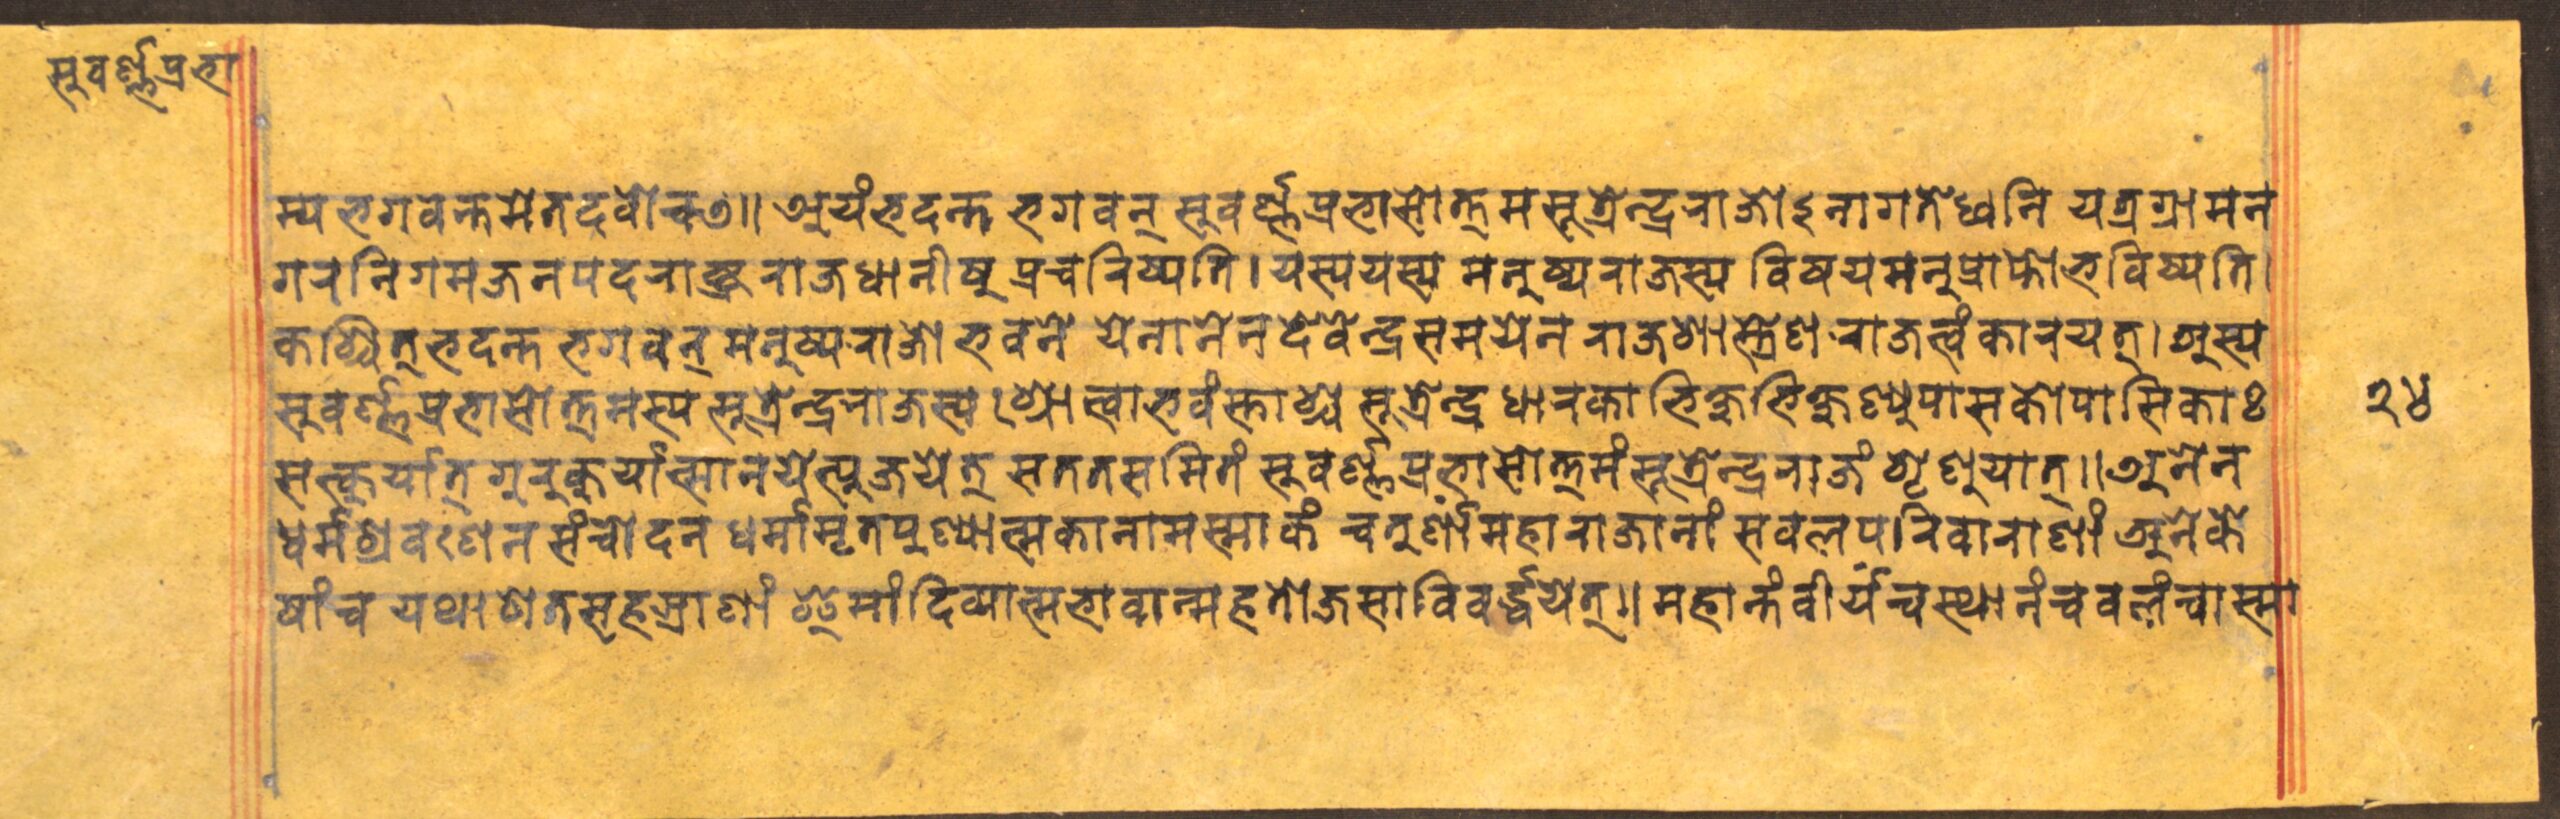 सुवर्ण्णप्रभा
म्य भगवन्तमेतदवोचत्॥ अयंभदन्त भगवन् सुवर्ण्णप्रभासोत्तमसूत्रेन्द्रराजोऽनागतेध्वनि यत्रग्रामन
गरनिगमजनपदराष्ट्रराजधानीषु प्रचरिष्यति। यस्ययस्य मनुष्यराजस्य विषयमनुप्राप्तोभविष्यति।
कश्चित्भदन्त भगवन् मनुष्यराजो भवने येनानेनदेवेन्द्रसमयेन राजशास्त्रेण राजत्वंकारयत्। अस्य
सुवर्ण्णप्रभासोत्तमस्य सूत्रेन्द्रराजस्य श्रोत्वाभवंस्ताश्च सूत्रेन्द्रधारकाभिक्षुभिक्षुण्युपासकोपासिकाः
सत्कुर्यात् गुरुकुर्यान्मानयेत्पुजयेत् सततसमितं सुवर्ण्णप्रभासोत्तमंसूत्रेन्द्रराजं शृणुयात्॥अनेन
धर्मश्रवणेन संचोदन धर्मामृतपुण्यात्मकानामस्माकं चतुर्णांमहाराजानां सवलपरिवाराणां अनेके
षांच यथाशतसहस्राणां इमांदिव्यात्मभावान्महतोजसाविवर्द्धयेत्॥ महान्तंवीर्यंचस्थानंचवलंचास्मा
२४